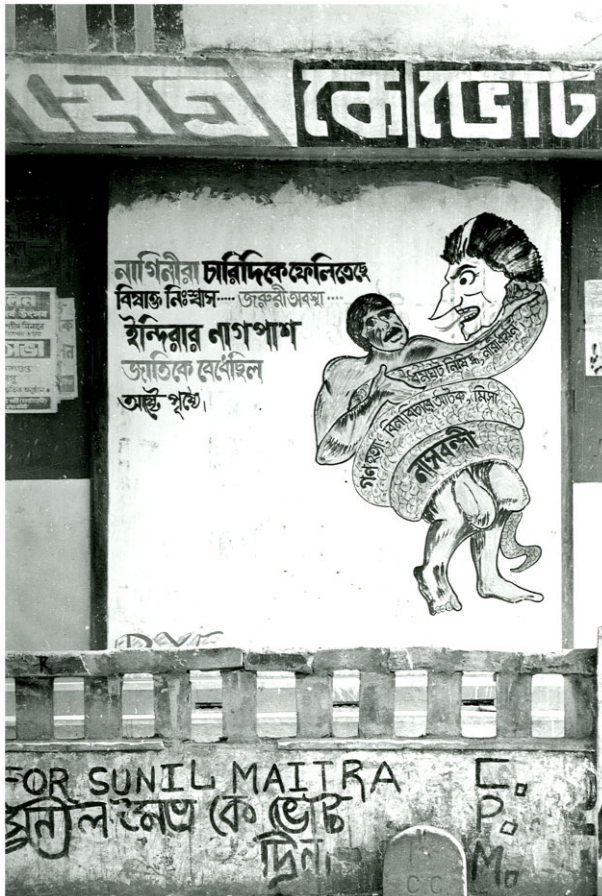 মৈত্র কে ভোট
নাগিনীরা চারিদিকে ফেলিতেছে
বিষাক্ত নিঃশ্বাস..... জরুরী অবস্থা ....
ইন্দিরার নাগপাশ
জাতিকে বেঁধেছিল
আষ্টে পৃষ্ঠে।
ধর্মঘট নিষিদ্ধ,
গণহত্যা, বিনা বিচারে আটক, মিসা
নাসবন্দী
FOR SUNIL MAITRA C.P.M.
সুনীল মৈত্র কে ভোট
দিন।
C C